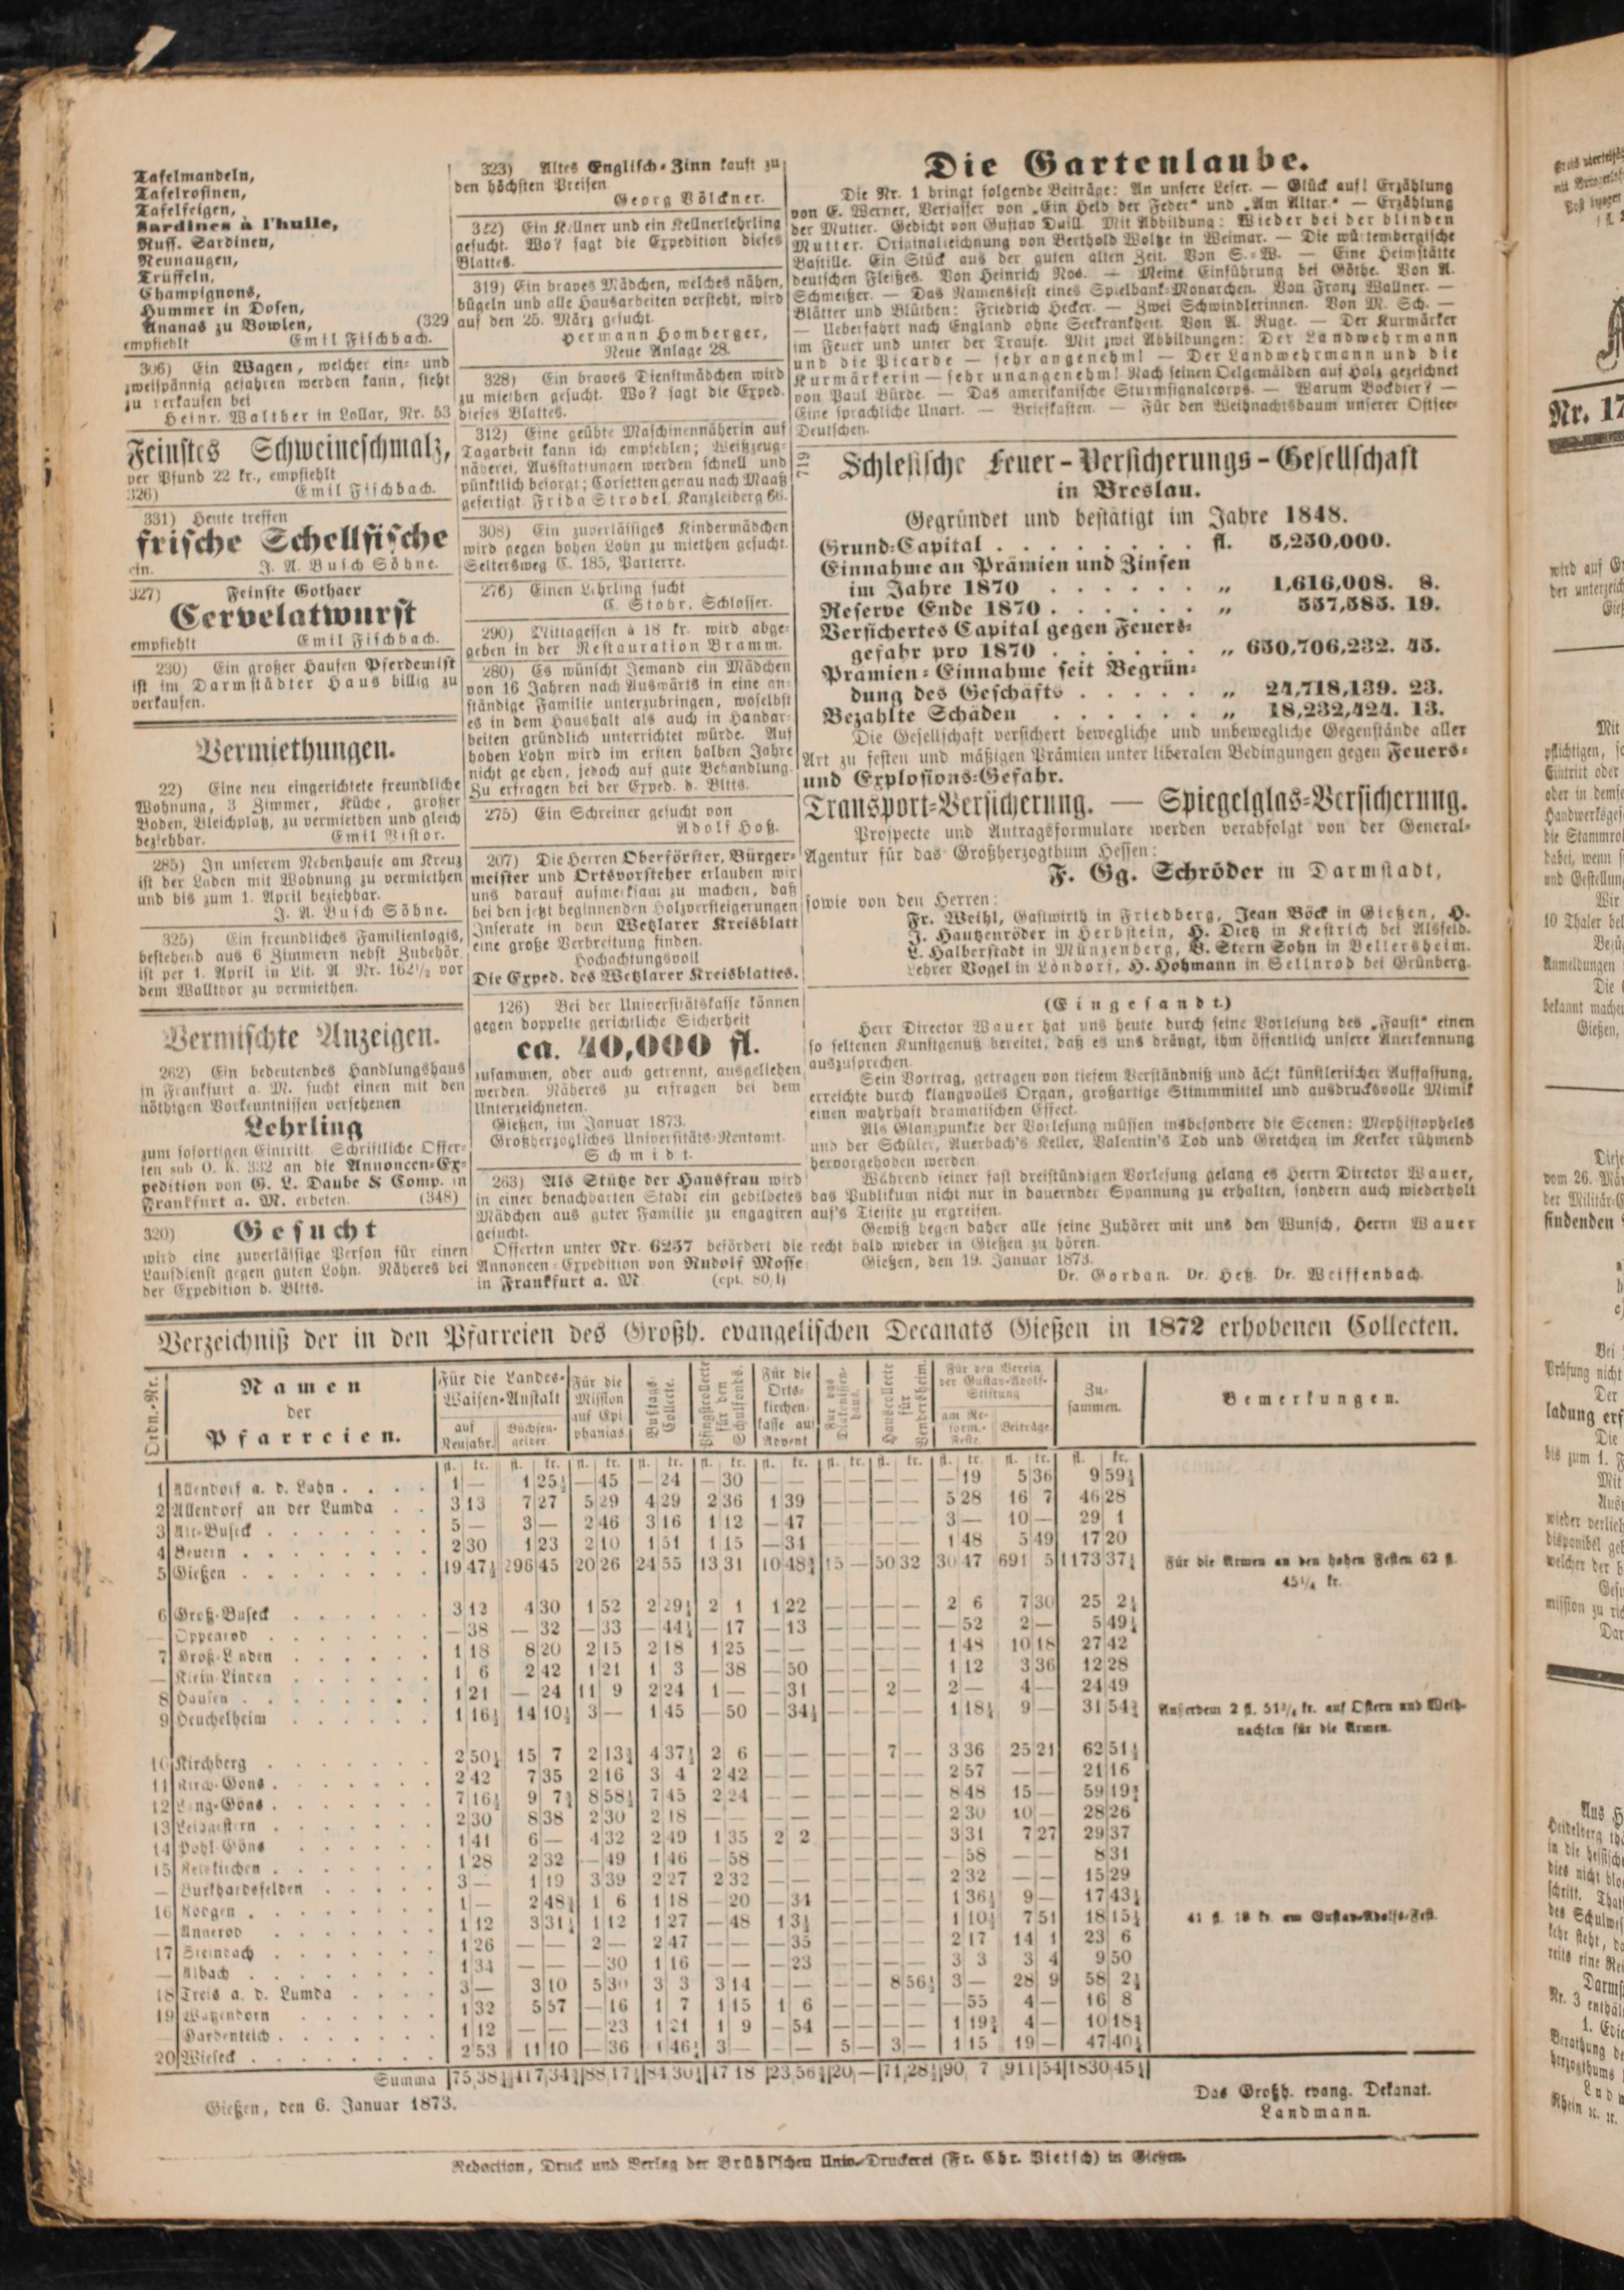 Tafelmandeln,
Tafelrosinen,
Tafelfeigen,
Sardines à l'huile,
Russ. Sardinen,
Neunaugen,
Trüffeln,
Champignons,
Hummer in Dosen,
Ananas zu Bowlen, (329
empfiehlt Emil Fischbach.
306) Ein Wagen, welcher ein- und
zweispännig gefahren werden kann, steht
zu verkaufen bei
Heinr. Walther in Lollar, Nr. 53
Feinstes Schweineschmalz,
per Pfund 22 kr., empfiehlt
326) Emil Fischbach.
331) Heute treffen
frische Schellfische
ein. J. A. Busch Söhne.
327) Feinste Gothaer
Cervelatwurst
empfiehlt Emil Fischbach.
230) Ein großer Haufen Pferdemist
ist im Darmstädter Haus billig zu
verkaufen.
Vermiethungen.
22) Eine neu eingerichtete freundliche
Wohnung, 3 Zimmer, Küche, großer
Boden, Bleichplatz, zu vermiethen und gleich
beziehbar. Emil Pistor.
285) In unserem Nebenhause am Kreuz
ist der Laden mit Wohnung zu vermiethen
und bis zum 1. April beziehbar.
J. A. Busch Söhne.
325) Ein freundliches Familienlogis,
bestehend aus 6 Zimmern nebst Zubehör
ist per 1. April in Lit. A Nr. 162½ vor
dem Wallthor zu vermiethen.
Vermischte Anzeigen.
262) Ein bedeutendes Handlungshaus
in Frankfurt a. M. sucht einen mit den
nöthigen Vorkenntnissen versehenen
Lehrling
zum sofortigen Eintritt. Schriftliche Offer-
ten sub O. K. 332 an die Annoncen-Ex-
pedition von G. L. Daube & Comp. in
Frankfurt a. M. erbeten. (348)
320) Gesucht
wird eine zuverlässige Person für einen
Laufdienst gegen guten Lohn. Näheres bei
der Expedition d. Bltts.
323) Altes Englisch-Zinn kauft zu
den höchsten Preisen
Georg Völckner.
322) Ein Kellner und ein Kellnerlehrling
gesucht. Wo? sagt die Expedition dieses
Blattes.
319) Ein braves Mädchen, welches nähen,
bügeln und alle Hausarbeiten versteht, wird
auf den 25. März gesucht.
Hermann Homberger,
Neue Anlage 28.
328) Ein braves Dienstmädchen wird
zu miethen gesucht. Wo? sagt die Exped.
dieses Blattes.
312) Eine geübte Maschinennäherin auf
Tagarbeit kann ich empfehlen; Weißzeug-
näherei, Ausstattungen werden schnell und
pünktlich besorgt; Corsetten genau nach Maaß
gefertigt. Frida Strobel, Kanzleiberg 66.
308) Ein zuverlässiges Kindermädchen
wird gegen hohen Lohn zu miethen gesucht.
Seltersweg C. 185, Parterre.
276) Einen Lehrling sucht
C. Stohr, Schlosser.
290) Mittagessen à 18 kr. wird abge-
geben in der Restauration Bramm.
280) Es wünscht Jemand ein Mädchen
von 16 Jahren nach Auswärts in eine an-
ständige Familie unterzubringen, woselbst
es in dem Haushalt als auch in Handar-
beiten gründlich unterrichtet würde. Auf
hohen Lohn wird im ersten halben Jahre
nicht gesehen, jedoch auf gute Behandlung.
Zu erfragen bei der Exped. d. Bltts.
275) Ein Schreiner gesucht von
Adolf Hoß.
207) Die Herren Oberförster, Bürger-
meister und Ortsvorsteher erlauben wir
uns darauf aufmerksam zu machen, daß
bei den jetzt beginnenden Holzversteigerungen
Inserate in dem Wetzlarer Kreisblatt
eine große Verbreitung finden.
Hochachtungsvoll
Die Exped. des Wetzlarer Kreisblattes.
126) Bei der Universitätskasse können
gegen doppelte gerichtliche Sicherheit
ca. 40,000 fl.
zusammen, oder auch getrennt, ausgeliehen
werden. Näheres zu erfragen bei dem
Unterzeichneten.
Gießen, im Januar 1873.
Großherzogliches Universitäts-Rentamt.
Schmidt.
263) Als Stütze der Hausfrau wird
in einer benachbarten Stadt ein gebildetes
Mädchen aus guter Familie zu engagiren
gesucht.
Offerten unter Nr. 6257 befördert die
Annoncen-Expedition von Rudolf Mosse
in Frankfurt a. M. (cpt. 80,1)
Die Gartenlaube.
Die Nr. 1 bringt folgende Beiträge: An unsere Leser. — Glück auf! Erzählung
von E. Werner, Verfasser von „Ein Held der Feder“ und „Am Altar.“ — Erzählung
der Mutter. Gedicht von Gustav Duill. Mit Abbildung: Wieder bei der blinden
Mutter. Originalzeichnung von Berthold Woltze in Weimar. — Die würtembergische
Bastille. Ein Stück aus der guten alten Zeit. Von S.-W. — Eine Heimstätte
deutschen Fleißes. Von Heinrich Noe. — Meine Einführung bei Göthe. Von A.
Schmeißer. — Das Namensfest eines Spielbank-Monarchen. Von Franz Wallner. —
Blätter und Blüthen: Friedrich Hecker. — Zwei Schwindlerinnen. Von M. Sch. —
— Ueberfahrt nach England ohne Seekrankheit. Von A. Ruge. — Der Kurmärker
im Feuer und unter der Traufe. Mit zwei Abbildungen: Der Landwehrmann
und die Picarde — sehr angenehm! — Der Landwehrmann und die
Kurmärkerin — sehr unangenehm! Nach seinen Oelgemälden auf Holz gezeichnet
von Paul Bürde. — Das amerikanische Sturmsignalcorps. — Warum Bockbier? —
Eine sprachliche Unart. — Briefkasten. — Für den Weihnachtsbaum unserer Ostsee-
Deutschen.
719
Schlesische Feuer-Versicherungs-Gesellschaft
in Breslau.
Gegründet und bestätigt im Jahre 1848.
Grund-Capital . . . fl. 5,250,000.
Einnahme an Prämien und Zinsen
im Jahre 1870 . . . „ 1,616,008. 8.
Reserve Ende 1870 . . . „ 557,585. 19.
Versichertes Capital gegen Feuers-
gefahr pro 1870 . . . „ 650,706,232. 45.
Prämien-Einnahme seit Begrün-
dung des Geschäfts . . . „ 24,718,139. 23.
Bezahlte Schäden . . . „ 18,232,424. 13.
Die Gesellschaft versichert bewegliche und unbewegliche Gegenstände aller
Art zu festen und mäßigen Prämien unter liberalen Bedingungen gegen Feuers-
und Explosions-Gefahr.
Transport-Versicherung. — Spiegelglas-Versicherung.
Prospecte und Antragsformulare werden verabfolgt von der General-
Agentur für das Großherzogthum Hessen:
F. Gg. Schröder in Darmstadt,
sowie von den Herren:
Fr. Weihl, Gastwirth in Friedberg, Jean Böck in Gießen, H.
J. Hautzenröder in Herbstein, H. Dietz in Kestrich bei Alsfeld.
L. Halberstadt in Münzenberg, B. Stern Sohn in Bellersheim.
Lehrer Vogel in Londorf, H. Hohmann in Sellnrod bei Grünberg.
(Eingesandt.)
Herr Director Wauer hat uns heute durch seine Vorlesung des „Faust“ einen
so seltenen Kunstgenuß bereitet, daß es uns drängt, ihm öffentlich unsere Anerkennung
auszusprechen.
Sein Vortrag, getragen von tiefem Verständniß und ächt künstlerischer Auffassung,
erreichte durch klangvolles Organ, großartige Stimmmittel und ausdrucksvolle Mimik
einen wahrhaft dramatischen Effect.
Als Glanzpunkte der Vorlesung müssen insbesondere die Scenen: Mephistopheles
und der Schüler, Auerbach's Keller, Valentin's Tod und Gretchen im Kerker rühmend
hervorgehoben werden.
Während seiner fast dreistündigen Vorlesung gelang es Herrn Director Wauer,
das Publikum nicht nur in dauernder Spannung zu erhalten, sondern auch wiederholt
auf's Tiefste zu ergreifen.
Gewiß hegen daher alle seine Zuhörer mit uns den Wunsch, Herrn Wauer
recht bald wieder in Gießen zu hören.
Gießen, den 19. Januar 1873.
Dr. Gordan. Dr. Heß. Dr. Weiffenbach.
Verzeichniß der in den Pfarreien des Großh. evangelischen Decanats Gießen in 1872 erhobenen Collecten.
Ordn.-Nr. Namen der Pfarreien. Für die Landes-Waisen-Anstalt auf Neujahr. Büchsengelder. Für die Mission auf Epiphanias. Bußtags-Collecte. Pfingstcollecte für den Schulfonds. Für die Ortskirchenkasse auf Advent Für das Diakonissenhaus. Hauscollecte für Bendersheim. Für den Verein der Gustav-Adolf-Stiftung am Reform.-Feste. Beiträge. Zusammen. Bemerkungen.
fl. kr. fl. kr. fl. kr. fl. kr. fl. kr. fl. kr. fl. kr. fl. kr. fl. kr. fl. kr. fl. kr.
1 Allendorf a. d. Lahn . . . 1 — 1 25½ — 45 — 24 — 30 — — — — — — — 19 5 36 9 59½
2 Allendorf an der Lumda . . 3 13 7 27 5 29 4 29 2 36 1 39 — — — — 5 28 16 7 46 28
3 Alt-Buseck . . . 5 — 3 — 2 46 3 16 1 12 — 47 — — — — 3 — 10 — 29 1
4 Beuern . . . 2 30 1 23 2 10 1 51 1 15 — 34 — — — — 1 48 5 49 17 20
5 Gießen . . . 19 47½ 296 45 20 26 24 55 13 31 10 48½ 15 — 50 32 30 47 691 5 1173 37½ Für die Armen an den hohen Festen 62 fl.
45¼ kr.
6 Groß-Buseck . . . 3 12 4 30 1 52 2 29½ 2 1 1 22 — — — — 2 6 7 30 25 2½
— Oppenrod . . . — 38 — 32 — 33 — 44½ — 17 — 13 — — — — — 52 2 — 5 49½
7 Groß-Linden . . . 1 18 8 20 2 15 2 18 1 25 — — — — — — 1 48 10 18 27 42
— Klein-Linden . . . 1 6 2 42 1 21 1 3 — 38 — 50 — — — — 1 12 3 36 12 28
8 Hausen . . . 1 21 — 24 11 9 2 24 1 — — 31 — — 2 — 2 — 4 — 24 49
9 Heuchelheim . . . 1 16½ 14 10½ 3 — 1 45 — 50 — 34½ — — — — 1 18½ 9 — 31 54½ Außerdem 2 fl. 51¾ kr. auf Ostern und Weih-
nachten für die Armen.
10 Kirchberg . . . 2 50½ 15 7 2 13½ 4 37½ 2 6 — — — — 7 — 3 36 25 21 62 51½
11 Kirch-Göns . . . 2 42 7 35 2 16 3 4 2 42 — — — — — — 2 57 — — 21 16
12 Lang-Göns . . . 7 16½ 9 7½ 8 58½ 7 45 2 24 — — — — — — 8 48 15 — 59 19½
13 Leihgestern . . . 2 30 8 38 2 30 2 18 — — — — — — — — 2 30 10 — 28 26
14 Pohl-Göns . . . 1 41 6 — 4 32 2 49 1 35 2 2 — — — — 3 31 7 27 29 37
15 Reiskirchen . . . 1 28 2 32 — 49 1 46 — 58 — — — — — — — 58 — — 8 31
— Burkhardsfelden . . . 3 — 1 19 3 39 2 27 2 32 — — — — — — 2 32 — — 15 29
16 Roegen . . . 1 — 2 48½ 1 6 1 18 — 20 — 34 — — — — 1 36½ 9 — 17 43½
— Annerod . . . 1 12 3 31½ 1 12 1 27 — 48 1 3½ — — — — 1 10½ 7 51 18 15½ 41 fl. 18 kr. am Gustav-Adolfs-Fest.
17 Steinbach . . . 1 26 — — 2 — 2 47 — — — 35 — — — — 2 17 14 1 23 6
— Albach . . . 1 34 — — — 30 1 16 — — — 23 — — — — 3 3 3 4 9 50
18 Treis a. d. Lumda . . . 3 — 3 10 5 30 3 3 3 14 — — — — 8 56½ 3 — 28 9 58 2½
19 Watzenborn . . . 1 32 5 57 — 16 1 7 1 15 1 6 — — — — — 55 4 — 16 8
— Garbenteich . . . 1 12 — — — 23 1 21 1 9 — 54 — — — — 1 19½ 4 — 10 18½
20 Wieseck . . . 2 53 11 10 — 36 1 46½ 3 — — — 5 — 3 — 1 15 19 — 47 40½
Summa 75,38½ 417,34½ 88,17½ 84,30½ 47 18 23,56½ 20,— 71,28½ 90 7 911 54 1830,45½
Gießen, den 6. Januar 1873.
Das Großh. evang. Dekanat.
Landmann.
Redaction, Druck und Verlag der Brühl'schen Univ.-Druckerei (Fr. Chr. Pietsch) in Gießen.
Nr. 17